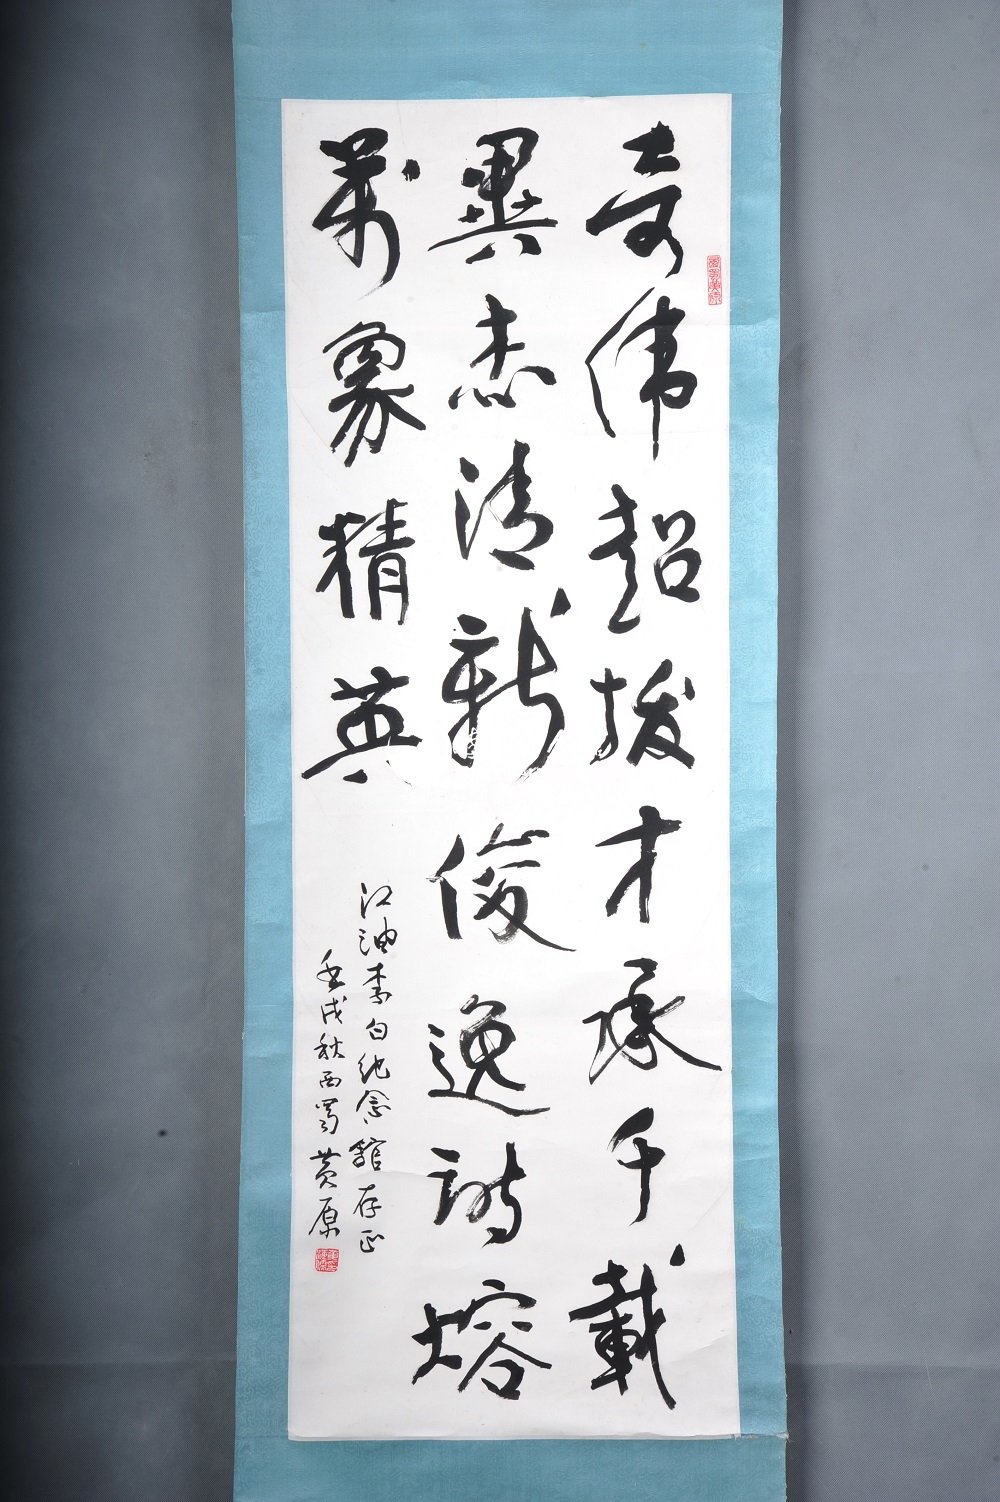 奇偉超拔才承千載
異杰清新俊逸詩熔
萬象精英
江油李白纪念館存正
壬戌秋西蜀黄原